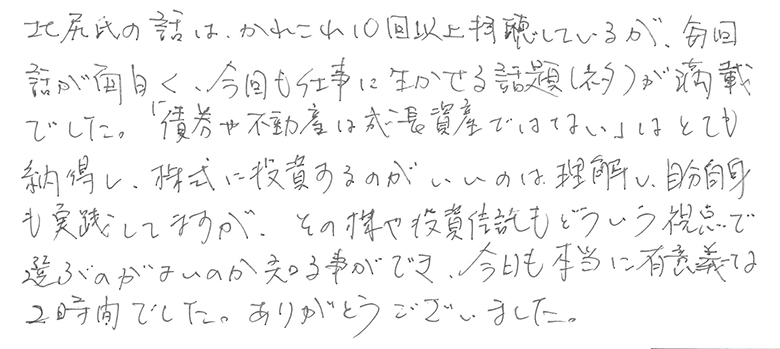 北尻氏の話は、かれこれ10回以上拝聴しているが、毎回
話が面白く、今回も仕事に生かせる話題(ネタ)が満載
でした。「債券や不動産は成長資産ではない」はとても
納得し、株式に投資するのがいいのは理解し、自分自身
も実践してますが、その株や投資信託もどういう視点で
選ぶのがよいのか知る事ができ、今日も本当に有意義な
2時間でした。ありがとうございました。